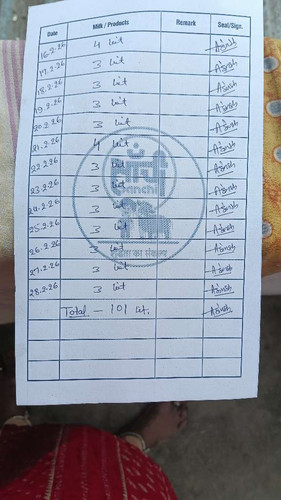 Date Milk / Products Remark Seal/Sign.
16.2.26 4 lit Asnish
17.2.26 3 lit
18.2.26 3 lit
19.2.26 3 lit
20.2.26 3 lit
21.2.26 4 lit
22.2.26 3 lit
23.2.26 3 lit
24.2.26 3 lit
25.2.26 3 lit
26.2.26 3 lit
27.2.26 3 lit
28.2.26 3 lit
Total - 101 lit.
साँची
Sanchi
शुद्धता का संकल्प